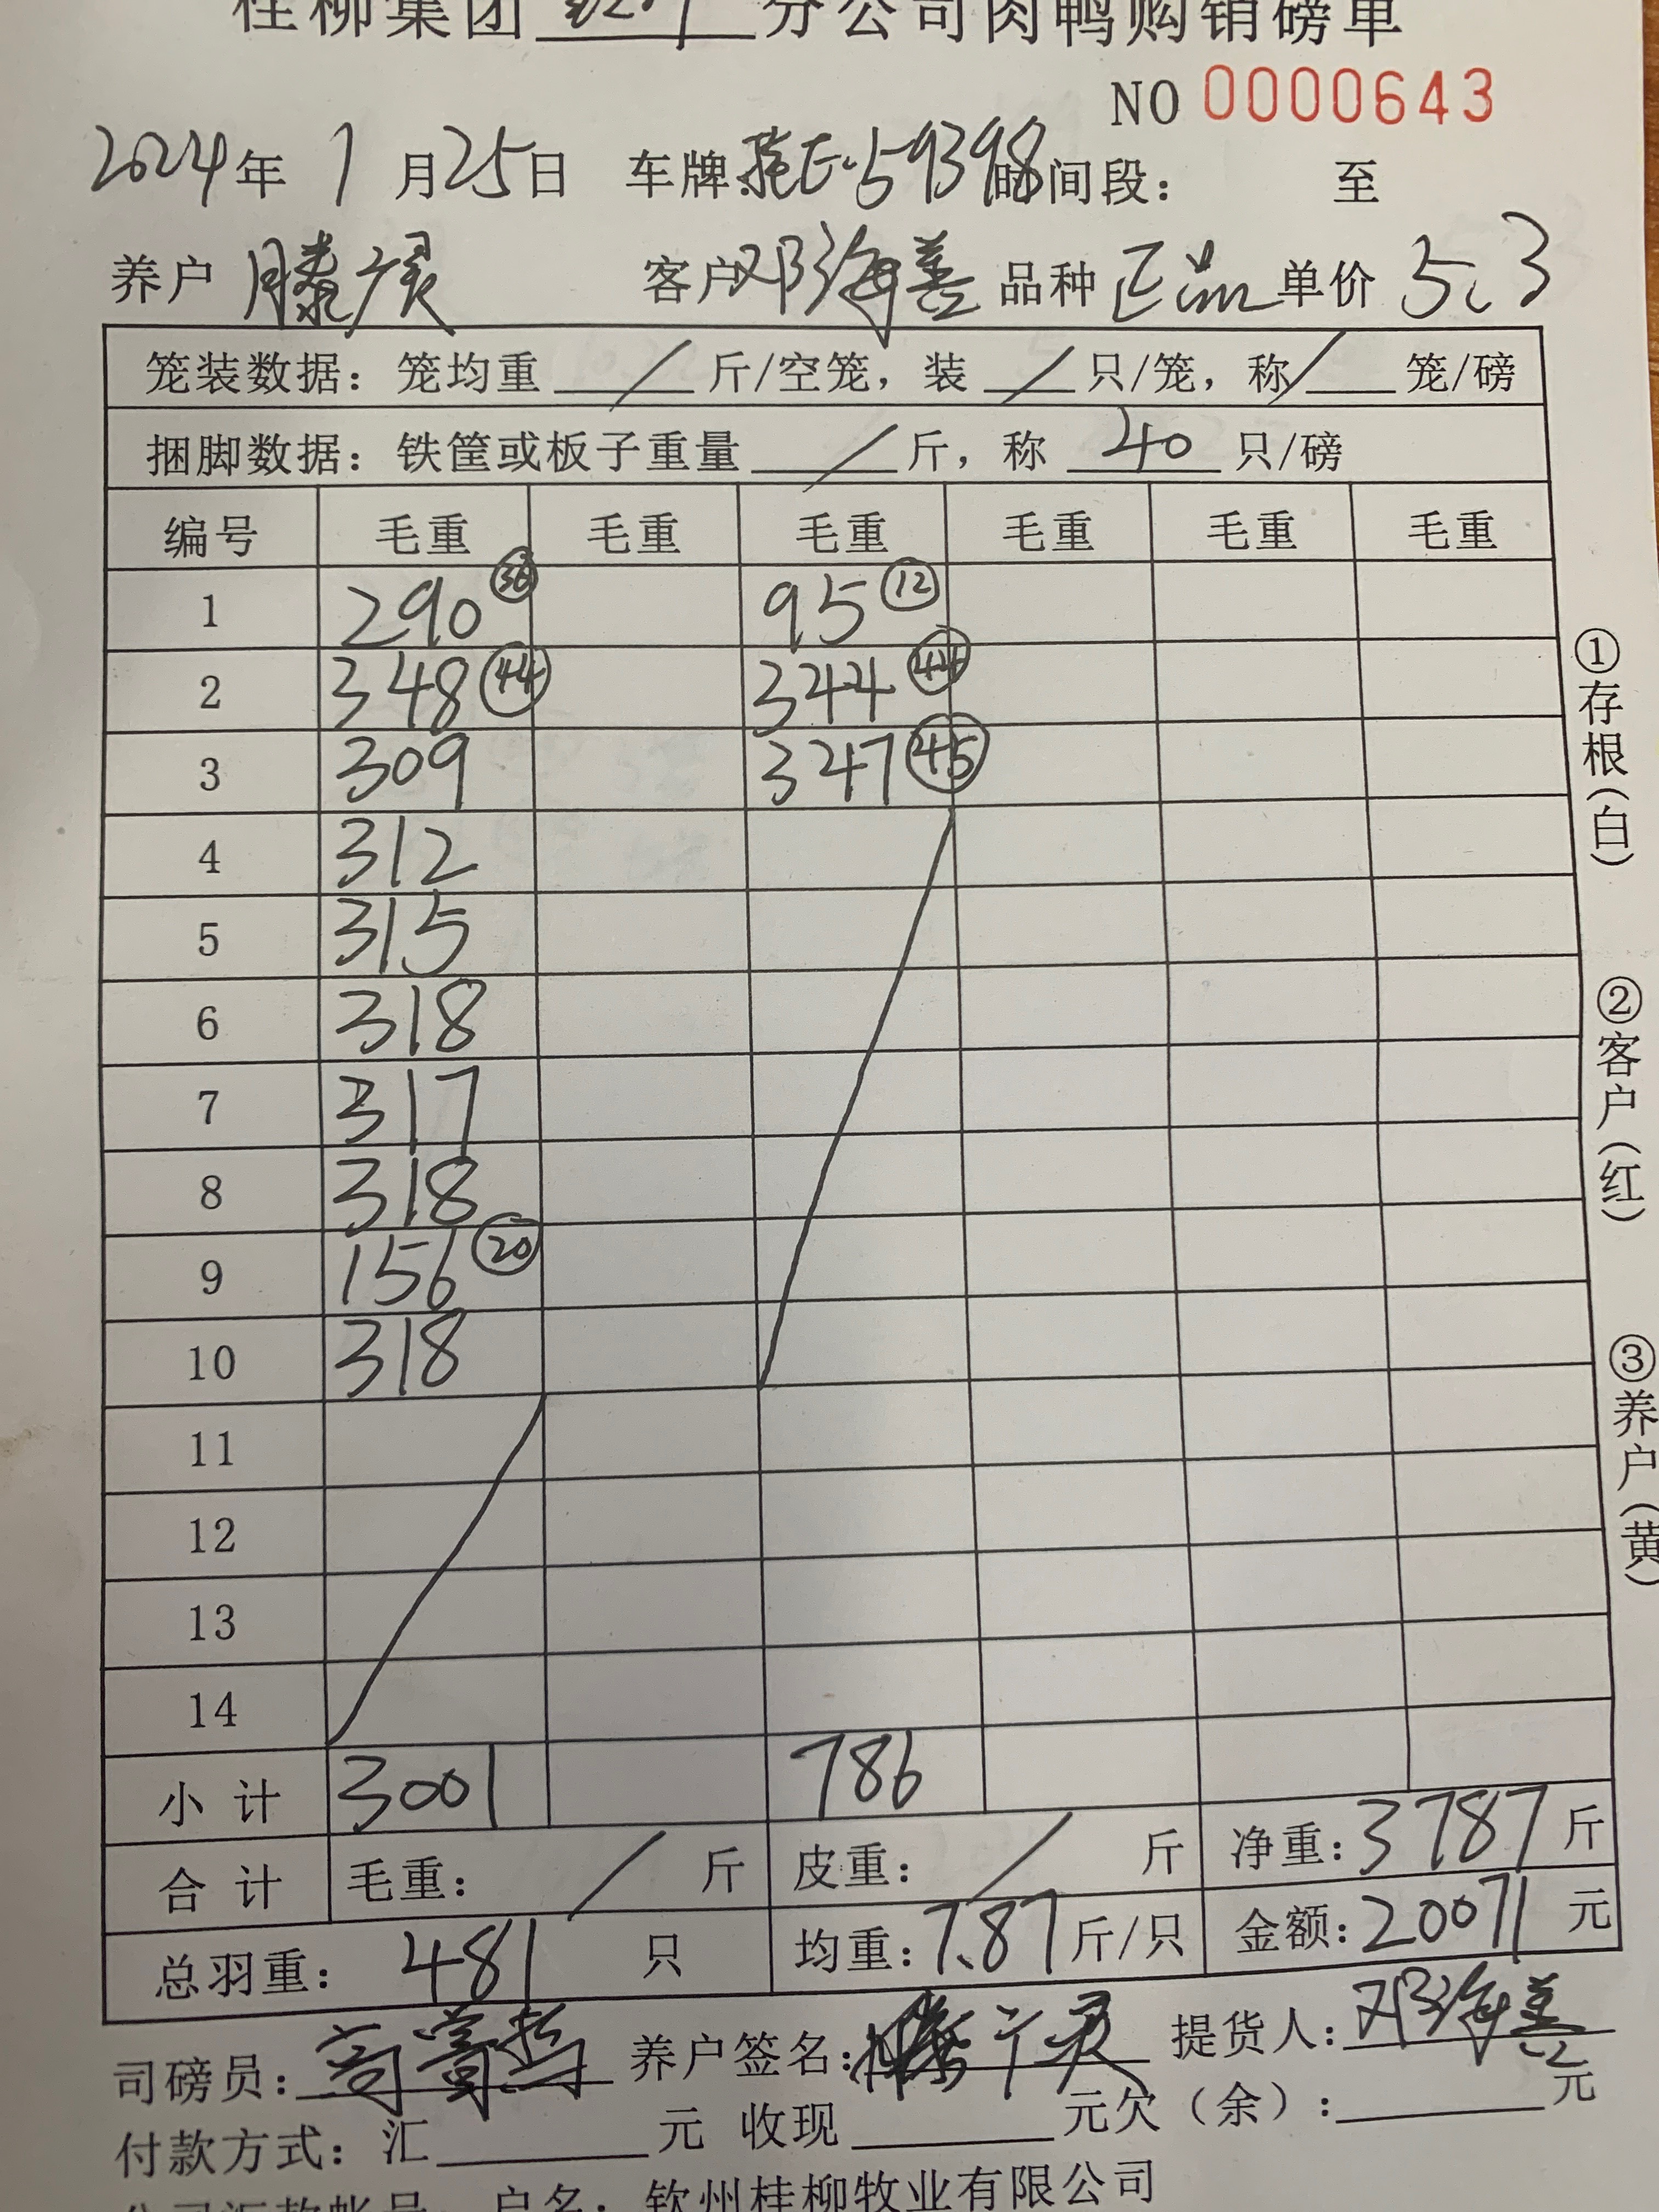 桂柳集团 分公司肉鸭购销磅单
NO 0000643
2024年 1月25日 车牌: 桂E·59398 时间段: 至
养户 滕广灵 客户 邓海善 品种 正品 单价 5.3
笼装数据: 笼均重 / 斤/空笼, 装 / 只/笼, 称 / 笼/磅
捆脚数据: 铁筐或板子重量 / 斤, 称 40 只/磅
编号 毛重 毛重 毛重 毛重 毛重 毛重
1 290 ㊱ 95 ⑫
2 348 ㊹ 344 ㊹
3 309 347 ㊺
4 312
5 315
6 318
7 317
8 318
9 156 ⑳
10 318
11
12
13
14
小计 3001 786
合计 毛重: / 斤 皮重: / 斤 净重: 3787 斤
总羽重: 481 只 均重: 7.87 斤/只 金额: 20071 元
司磅员: 养户签名: 滕广灵 提货人: 邓海善
付款方式: 汇 元 收现 元欠(余): 元
户名: 钦州桂柳牧业有限公司
①存根(白)
②客户(红)
③养户(黄)